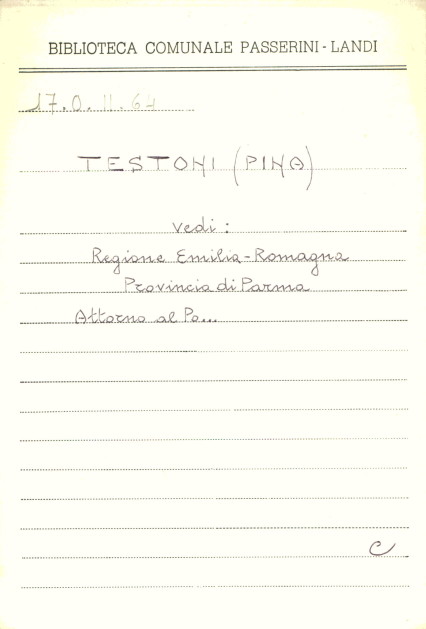 BIBLIOTECA COMUNALE PASSERINI-LANDI
17.0.11.64
TESTONI (PINA)
vedi:
Regione Emilia-Romagna
Provincia di Parma
Attorno al Po...
C